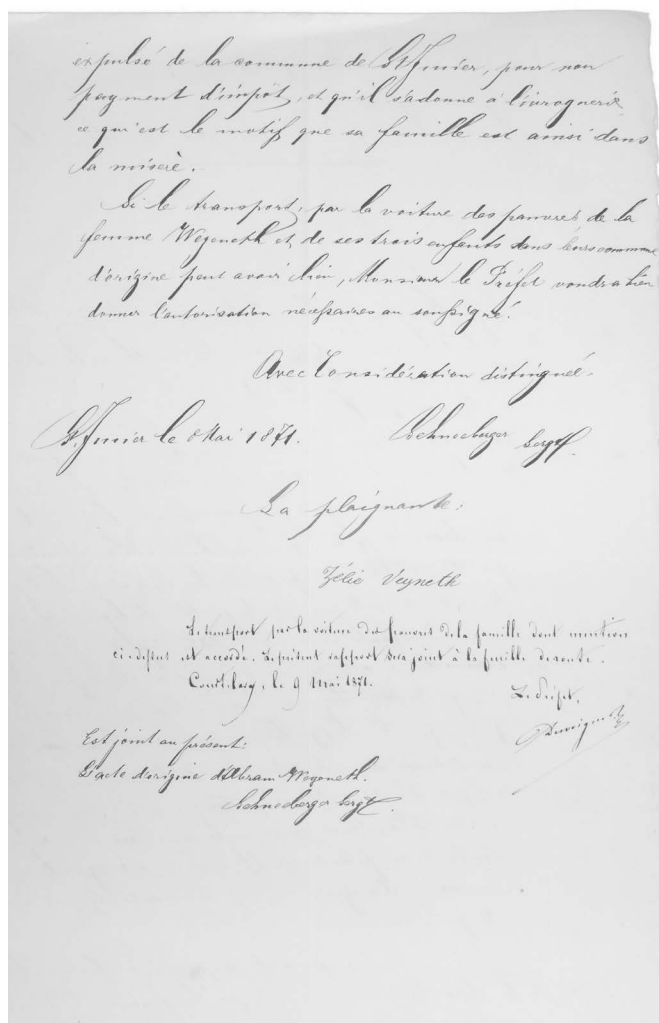 expulsé de la commune de St. Imier, pour non
payment d'impôt, et qu'il s'adonne à l'ivrognerie
ce qui est le motif que sa famille est ainsi dans
la misère.
Si le transport, par la voiture des pauvres de la
femme Wegeneth et de ses trois enfants dans leurs commune
d'origine peut avoir lieu, Monsieur le Préfet voudra bien
donner l'autorisation nécessaires au soussigné.
Avec Considération distinguée.
St. Imier le 8 Mai 1871. Schneeberger Sergt.
La plaignante:
Zélie Veyneth
Le transport par la voiture des pauvres de la famille dont mention
ci-dessus est accordé. Le présent rapport sera joint à la feuille de route.
Courtelary, le 9 Mai 1871. Le Préfet,
Est joint au présent:
L'acte d'origine d'Abram Wegeneth.
Schneeberger Sergt.